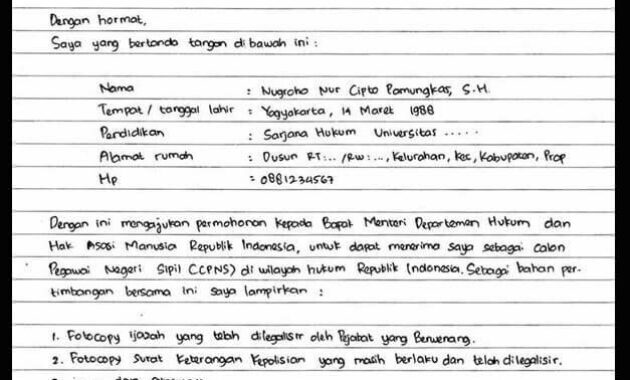 Dengan hormat,
Saya yang bertanda tangan dibawah ini :
Nama : Nugroho Nur Cipto Pamungkas, S.H.
Tempat / tanggal lahir : Yogyakarta, 14 Maret 1988
Pendidikan : Sarjana Hukum Universitas .....
Alamat rumah : Dusun RT:.. /RW:..., Kelurahan, Kec, Kabupaten, Prop
Hp : 0881234567
Dengan ini mengajukan permohonan kepada Bapak Menteri Departemen Hukum dan
Hak Asasi Manusia Republik Indonesia, untuk dapat menerima saya sebagai calon
Pegawai Negeri Sipil (CPNS) di wilayah hukum Republik Indonesia. Sebagai bahan per-
timbangan bersama ini saya lampirkan :
1. Fotocopy ijazah yang telah dilegalisir oleh Pejabat yang Berwenang.
2. Fotocopy Surat Keterangan Kepolisian yang masih berlaku dan telah dilegalisir.